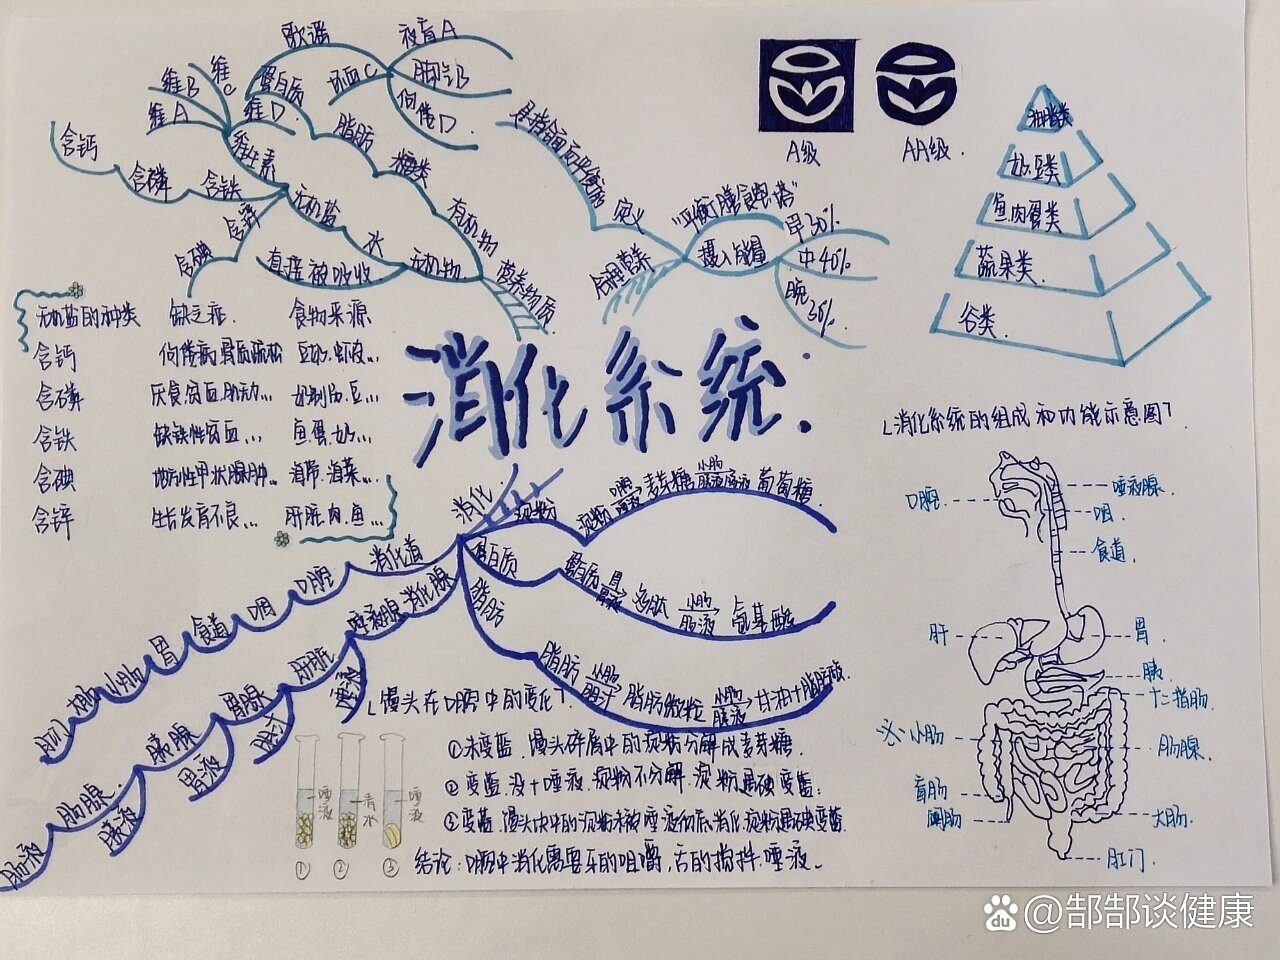 歌谣
夜盲A
坏血C
脚气B
佝偻D
维B
维C
维A
维D
蛋白质
脂肪
糖类
有机物
维生素
含钙
含磷
含铁
含锌
含碘
无机盐
水
无机物
直接被吸收
营养物质
定义
合理营养
"平衡膳食宝塔"
摄入能量
早30%
中40%
晚30%
A级
AA级.
油脂类
奶豆类
鱼肉蛋类
蔬果类
谷类
无机盐的种类 缺乏症. 食物来源
含钙 佝偻病.骨质疏松 豆奶.虾皮...
含磷 厌食.贫血.肌无力... 奶制品.豆...
含铁 缺铁性贫血... 鱼.蛋.奶...
含碘 地方性甲状腺肿... 海带.海菜...
含锌 生长发育不良... 肝脏.肉.鱼...
消化系统.
消化
淀粉
淀粉 口腔 唾液 麦芽糖 小肠 肠液胰液 葡萄糖
蛋白质
蛋白质 胃 胃液 多肽 小肠 肠液 氨基酸
脂肪
脂肪 小肠 胆汁 脂肪微粒 小肠 胰液 甘油+脂肪酸
消化道
口腔
咽
食道
胃
小肠
大肠
肛门
消化腺
唾液腺
唾液
肝脏
胆汁
胃腺
胃液
胰腺
胰液
肠腺
肠液
「馒头在口腔中的变化」
①未变蓝.馒头碎屑中的淀粉分解成麦芽糖.
②变蓝.没+唾液.淀粉不分解.淀粉遇碘变蓝;
③变蓝.馒头块中的淀粉未被唾液彻底消化.淀粉遇碘变蓝.
结论:口腔中消化需要牙的咀嚼,舌的搅拌.唾液.
唾液
清水
唾液
① ② ③
「消化系统的组成和功能示意图」
口腔
唾液腺
咽
食道
肝
胃
胰
十二指肠
※小肠
肠腺
盲肠
阑肠
大肠
肛门
Bai du @郜郜谈健康